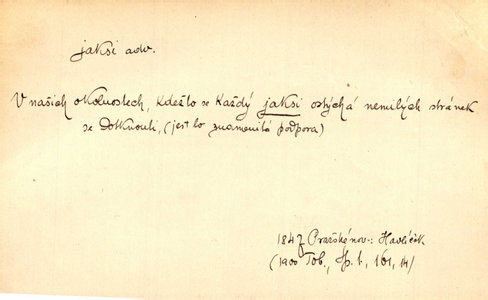 jaksi adv.
V našich okolnostech, kdežto se každý jaksi ostýchá nemilých stránek
se dotknouti, (jest to znamenitá podpora)
1847 Pražské nov.: Havlíček
(1900 Tob., Sp. 1, 161, 14)